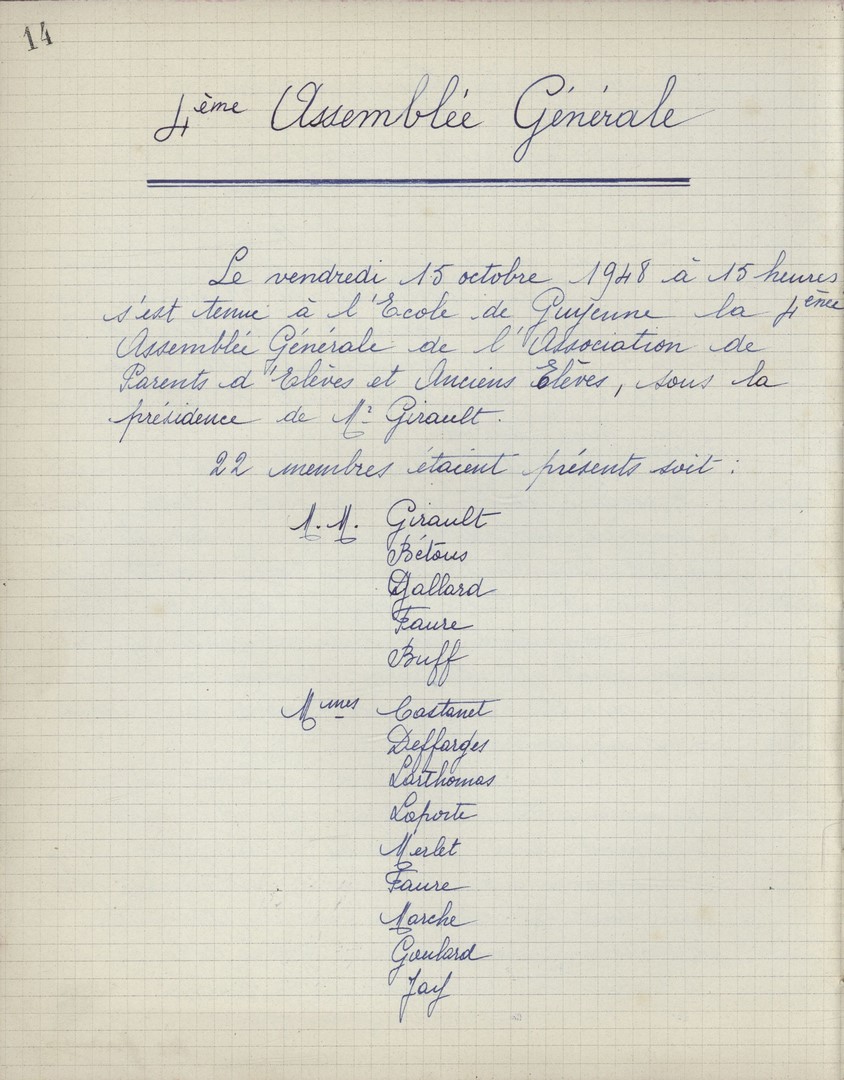 14
4ème Assemblée Générale
Le vendredi 15 octobre 1948 à 15 heures
s'est tenue à l'Ecole de Guyenne la 4ème
Assemblée Générale de l'Association de
Parents d'Elèves et Anciens Elèves, sous la
présidence de Mr Girault.
22 membres étaient présents soit :
M.M. Girault
Bétous
Gallard
Faure
Buff
Mmes Castanet
Deffarges
Larthomas
Laporte
Merlet
Faure
Marche
Goulard
Jay